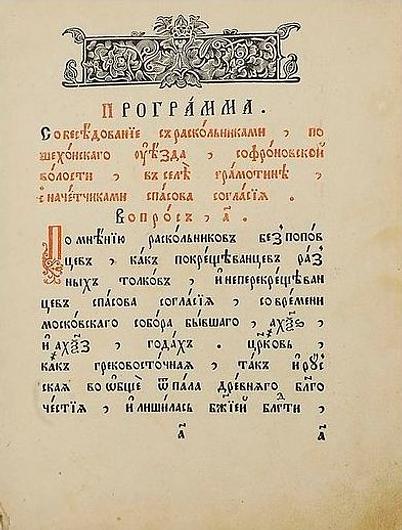 ПРОГРА́ММА.
Собесѣ́дованїе съ раско́льниками, по
шехо́нскаго ᲂу҆ѣ́зда, софро́новской
во́лости, въ селѣ̀ гра́мотинѣ,
с наче́тчиками спа́сова согла́сїѧ.
Вопро́съ, а҃.
По мнѣ́нїю раско́льниковъ безпопо́в
цевъ, ка́къ покреще́ванцевъ ра́з
ныхъ то́лковъ, и҆ неперекреще́ван
цевъ спа́сова согла́сїѧ, со вре́мени
моско́вскаго собо́ра бы́вшаго, ах҃ѯѕ,
и҆ ах҃ѯз, года́хъ. цр҃ковь,
ка́къ грековосто́чнаѧ, та́къ и҆ рꙋ́с
скаѧ во ѻ҆бщѐ ѿпа́ла дре́внѧго бл҃го
че́стїѧ, и҆ лиши́лась бж҃їей бл҃гдти,
а҃ а҃